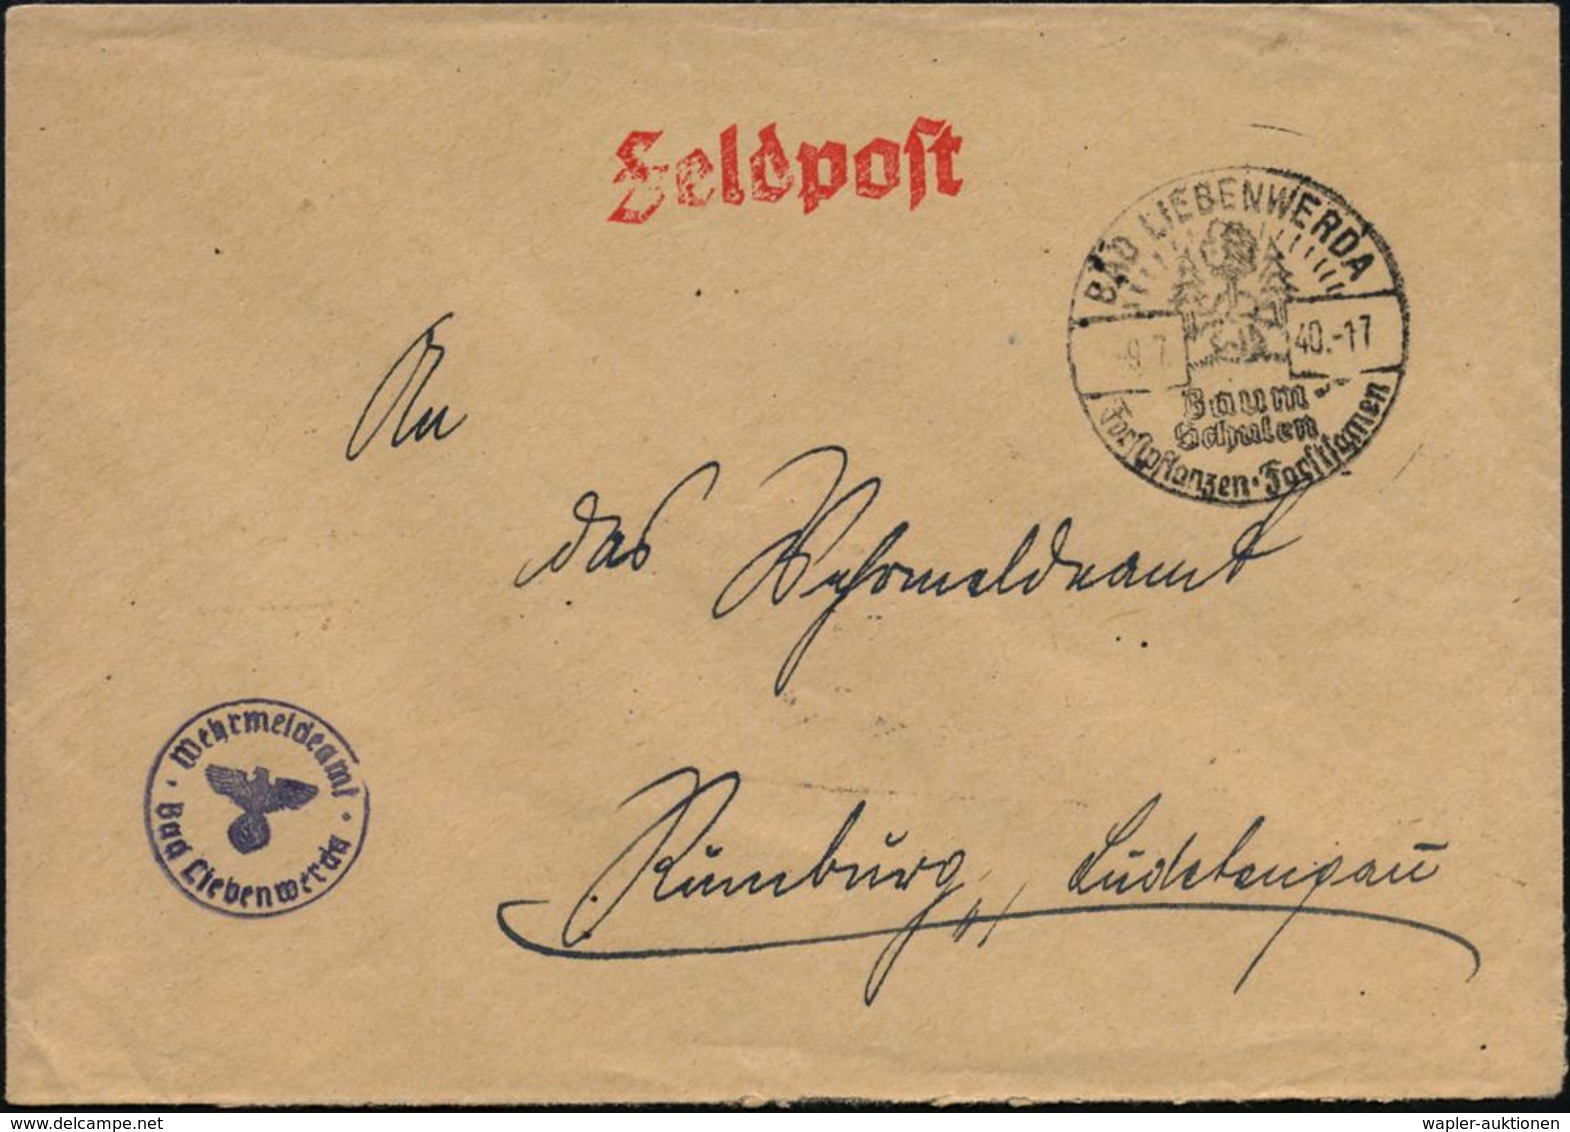 Feldpost
BAD LIEBENWERDA
-9.7.40.-17
Baum
Schulen
Forstpflanzen · Forstsamen
An
das Wehrmeldeamt
Rumburg, Sudetengau
Wehrmeldeamt
Bad Liebenwerda
wapler-auktionen